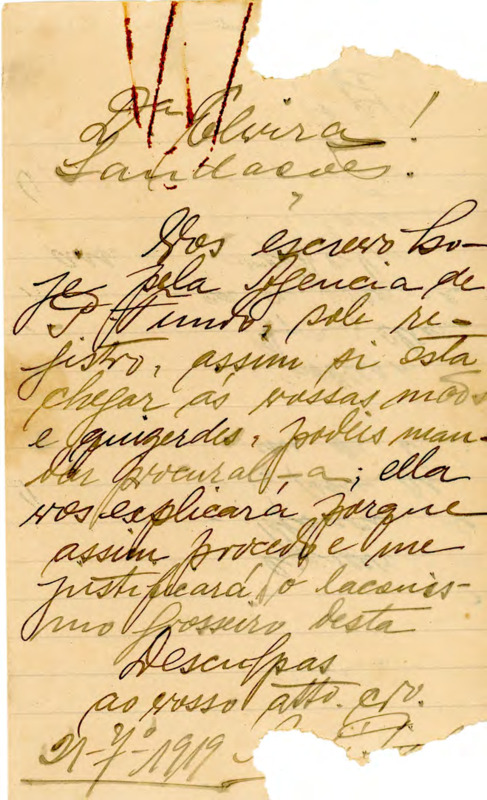 Dª Elvira!
Saudações.
Vos escrevo ho-
je, pela Agencia de
P. Fundo, sob re-
gistro, assim si esta
chegar ás vossas mãos
e quizerdes, podeis man-
dar procural-a; ella
vos explicará porque
assim procedo e me
justificará o laconis-
mo grosseiro desta
Desculpas
ao vosso atto. cro.
21-7º-1919